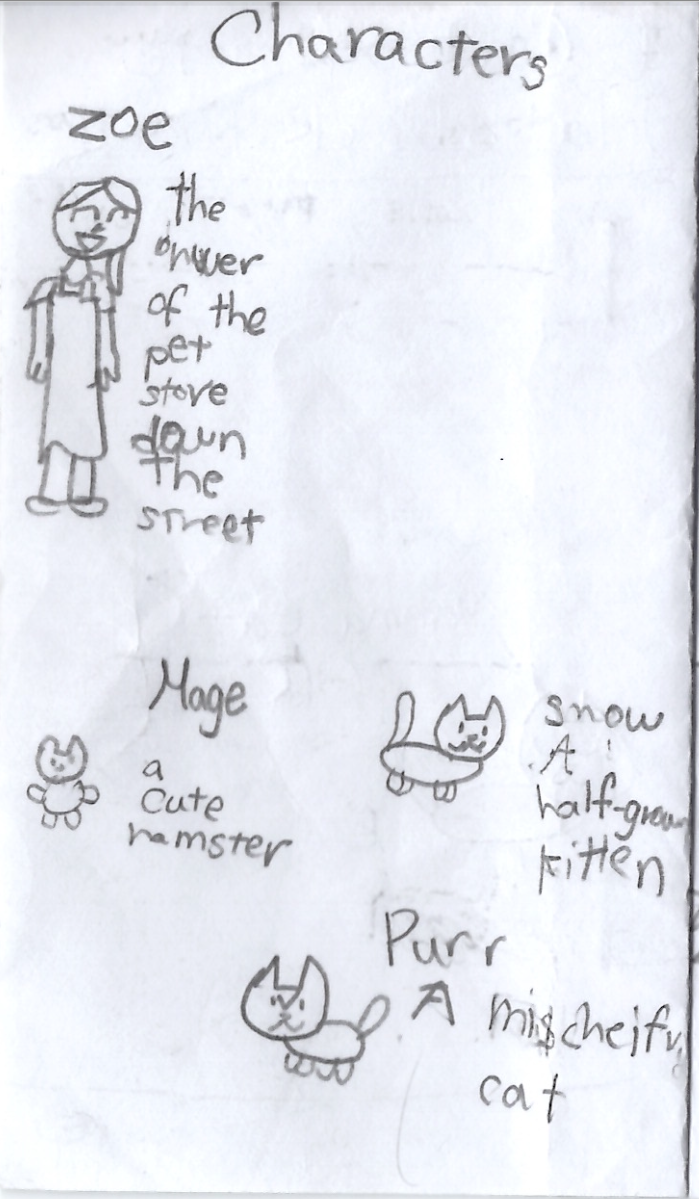 Characters
zoe
the
onwer
of the
pet
store
down
the
street
Mage
a
cute
hamster
snow
A
half-grown
kitten
Purr
A mischeifu
cat